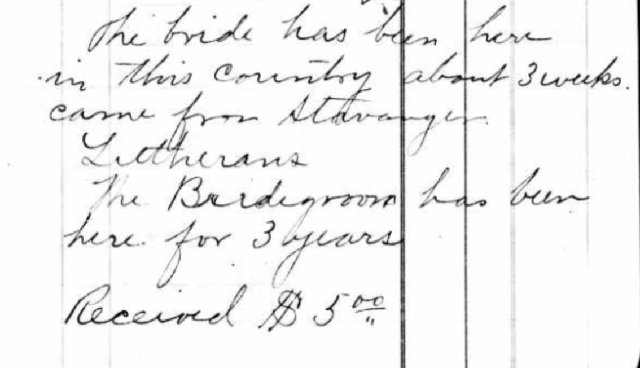 The bride has been here
in this country about 3 weeks.
came from Stavanger.
Lutherans
The Bridegroom has been
here for 3 years
Received $ 5 00